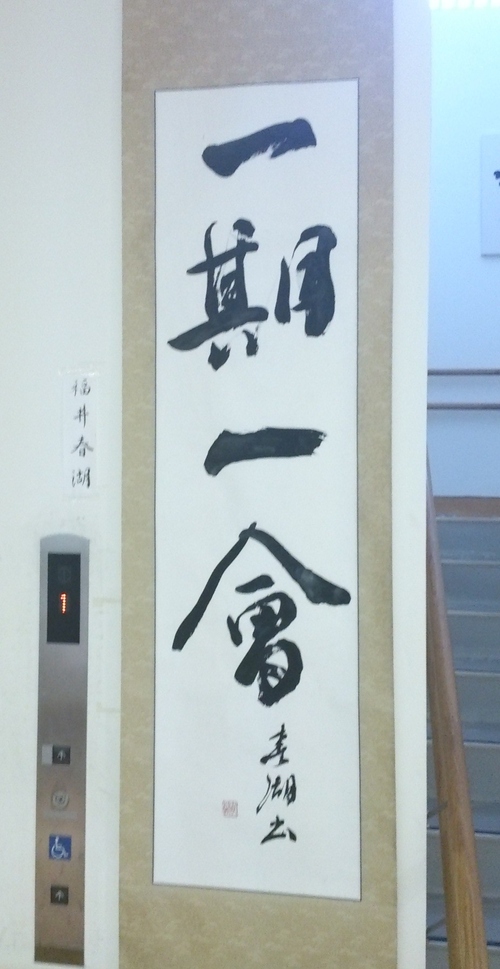 一期一會
春湖書
福井春湖
1